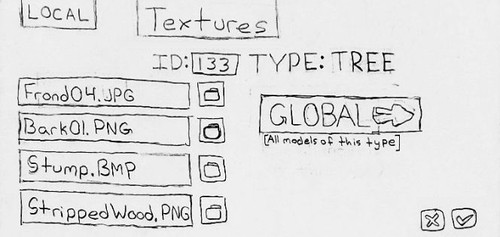 LOCAL
Textures
ID: 133 TYPE: TREE
Frond04.JPG
Bark01.PNG
Stump.BMP
StrippedWood.PNG
GLOBAL
[All models of this type]